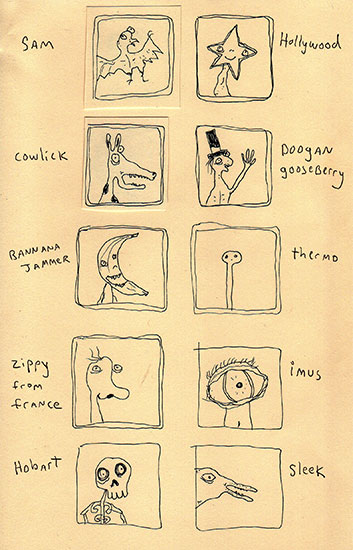 Sam
Hollywood
cowlick
Doogan
gooseberry
Bannana
Jammer
thermo
Zippy
from
france
imus
Hobart
Sleek